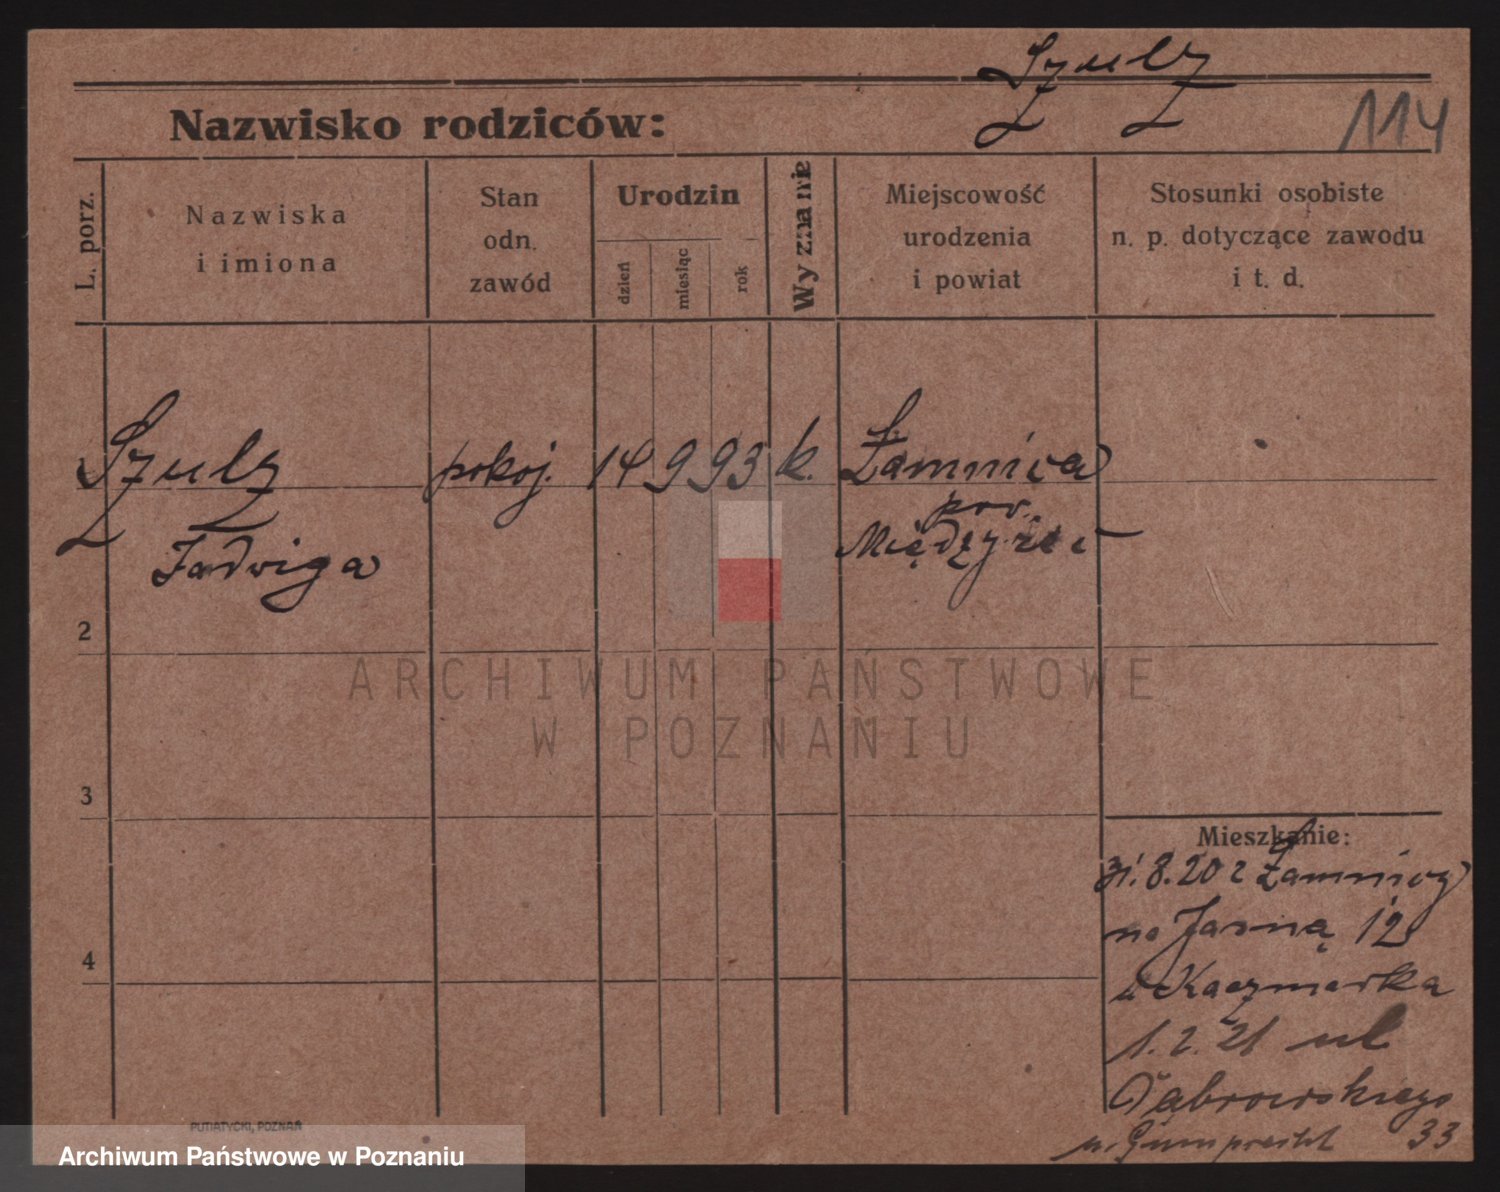 Szulz
Nazwisko rodziców:
114
L. porz.
Nazwiska
i imiona
Stan
odn.
zawód
Urodzin
dzień
miesiąc
rok
Wyznanie
Miejscowość
urodzenia
i powiat
Stosunki osobiste
n. p. dotyczące zawodu
i t. d.
1
Szulz
Jadwiga
pokoj.
14 9 93
k.
Łamnica
pow.
2
3
4
Mieszkanie:
31.8.20 z Łamnicy
na Jasną 12
u Kaczmarka
1.2.21 ul
Dąbrowskiego
33
ARCHIWUM PAŃSTWOWE
W POZNANIU
PUTIATYCKI, POZNAŃ
Archiwum Państwowe w Poznaniu